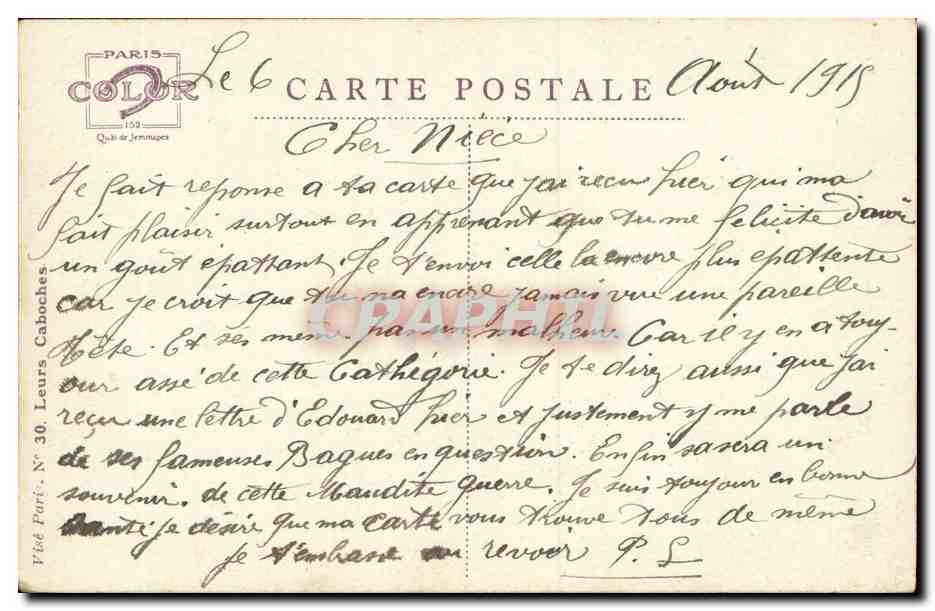 PARIS
COLOR
152
Quai de Jemmapes
Le 6 CARTE POSTALE Août 1915
Cher Niéce
Je fait reponse a ta carte que j'ai reçu hier qui ma
fait plaisir surtout en apprenant que tu me felicite d'avoir
un goût epattant. Je t'envoi celle la encore plus epattente
car je croit que tu na encore jamais vue une pareille
tête. Et ses meme pas un malheur. Car il y en a touj-
our assé de cette Cathégorie. Je te direz aussi que j'ai
reçu une lettre d'Edouard hier et justement y me parle
de ses fameuses Bagues en question. Enfin sa sera un
souvenir. de cette Maudite guerre. Je suis toujour en bonne
santé je désire que ma carte vous trouve tous de même
Je t'embrasse au revoir P. L
Visé Paris. N° 30. Leurs Caboches
CRAPHIL